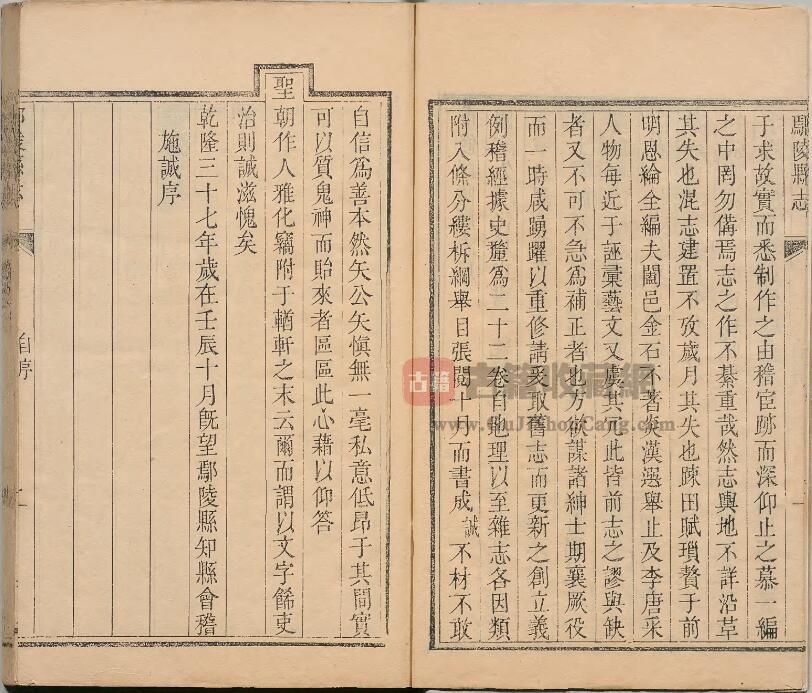 鄢陵縣志
于求故實而悉制作之由稽宦跡而深仰止之慕一編
之中罔勿備焉志之作不綦重哉然志輿地不詳沿革
其失也混志建置不攷歲月其失也疎田賦瑣贅于前
明恩綸全編夫闔邑金石不著炎漢選舉止及李唐采
人物每近于誣彙藝文又虞其冗此皆前志之謬與缺
者又不可不急為補正者也方欲謀諸紳士期襄厥役
而一時咸踴躍以重修請爰取舊志而更新之創立義
例稽經據史釐為二十二卷自地理以至雜志各因類
附入條分縷析綱舉目張閱十月而書成誠不材不敢
自信為善本然矢公矢慎無一毫私意低昂于其間實
可以質鬼神而貽來者區區此心藉以仰答
聖朝作人雅化竊附于輶軒之末云爾而謂以文字餙吏
治則誠滋愧矣
乾隆三十七年歲在壬辰十月旣望鄢陵縣知縣會稽
施誠序
自序
古籍
古籍收藏網
www.GuJiShouCang.com